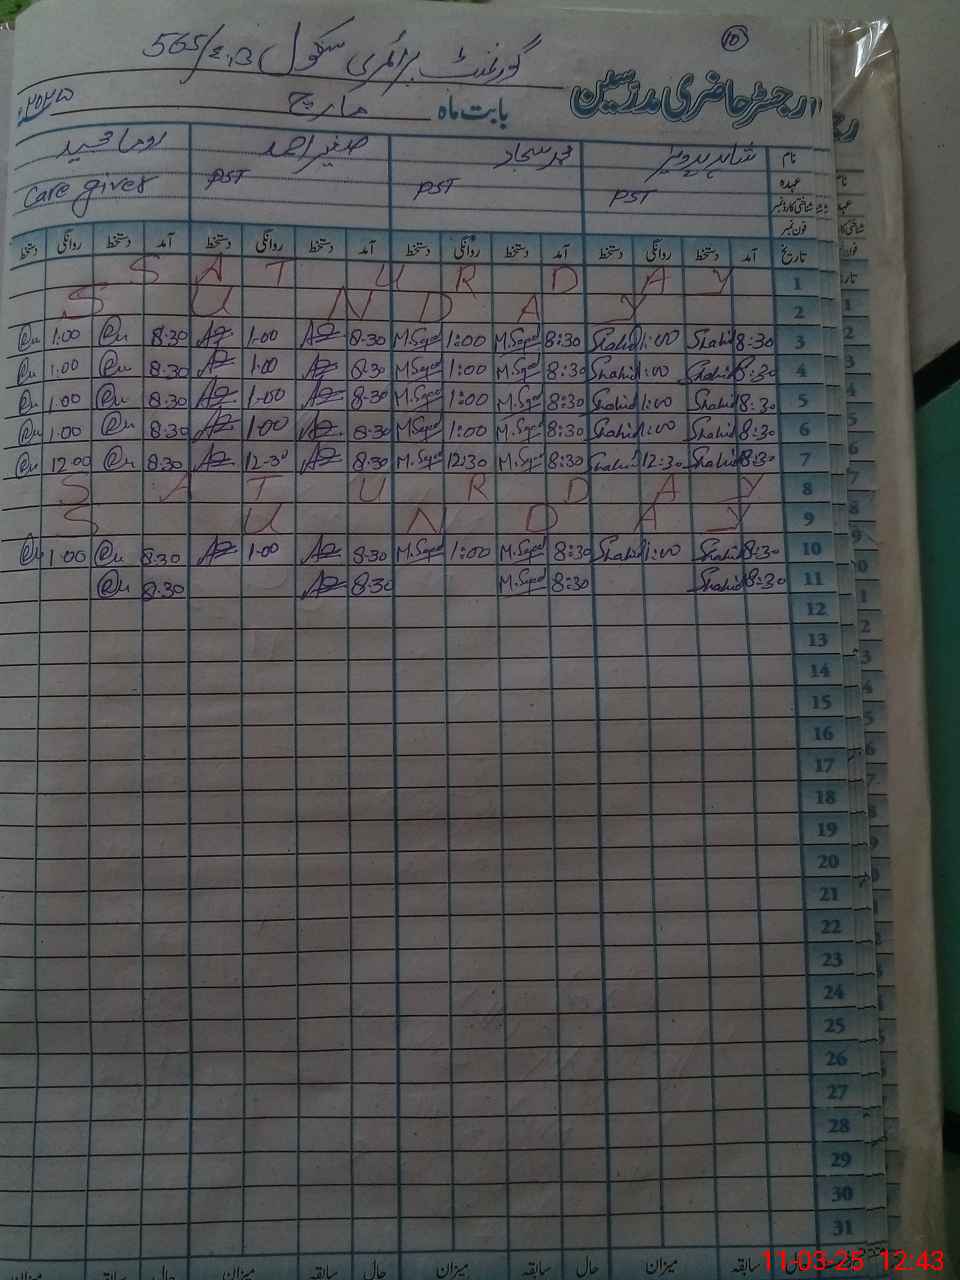 10
گورنمنٹ پرائمری سکول 565/E.B
رجسٹر حاضری مدرسین بابت ماہ مارچ ۲۰۲۵ء
نام شاہد پرویز محمد سجاد صغیر احمد
عہدہ PST PST PST Care giver
شناختی کارڈ نمبر
فون نمبر
تاریخ آمد دستخط روانگی دستخط آمد دستخط روانگی دستخط آمد دستخط روانگی دستخط آمد دستخط روانگی دستخط
1 SATURDAY
2 SUNDAY
3 8:30 Shahid 1:00 Shahid 8:30 M.Sajad 1:00 M.Sajad 8:30 1:00 8:30 1:00
4 8:30 Shahid 1:00 Shahid 8:30 M.Sajad 1:00 M.Sajad 8:30 1:00 8:30 1:00
5 8:30 Shahid 1:00 Shahid 8:30 M.Sajad 1:00 M.Sajad 8:30 1:00 8:30 1:00
6 8:30 Shahid 1:00 Shahid 8:30 M.Sajad 1:00 M.Sajad 8:30 1:00 8:30 1:00
7 8:30 Shahid 12:30 Shahid 8:30 M.Sajad 12:30 M.Sajad 8:30 12:30 8:30 12:00
8 SATURDAY
9 SUNDAY
10 8:30 Shahid 1:00 Shahid 8:30 M.Sajad 1:00 M.Sajad 8:30 1:00 8:30 1:00
11 8:30 Shahid 8:30 M.Sajad 8:30 8:30
12
13
14
15
16
17
18
19
20
21
22
23
24
25
26
27
28
29
30
31
حال سابقہ میزان حال سابقہ میزان حال سابقہ میزان حال سابقہ میزان
11-03-25 12:43